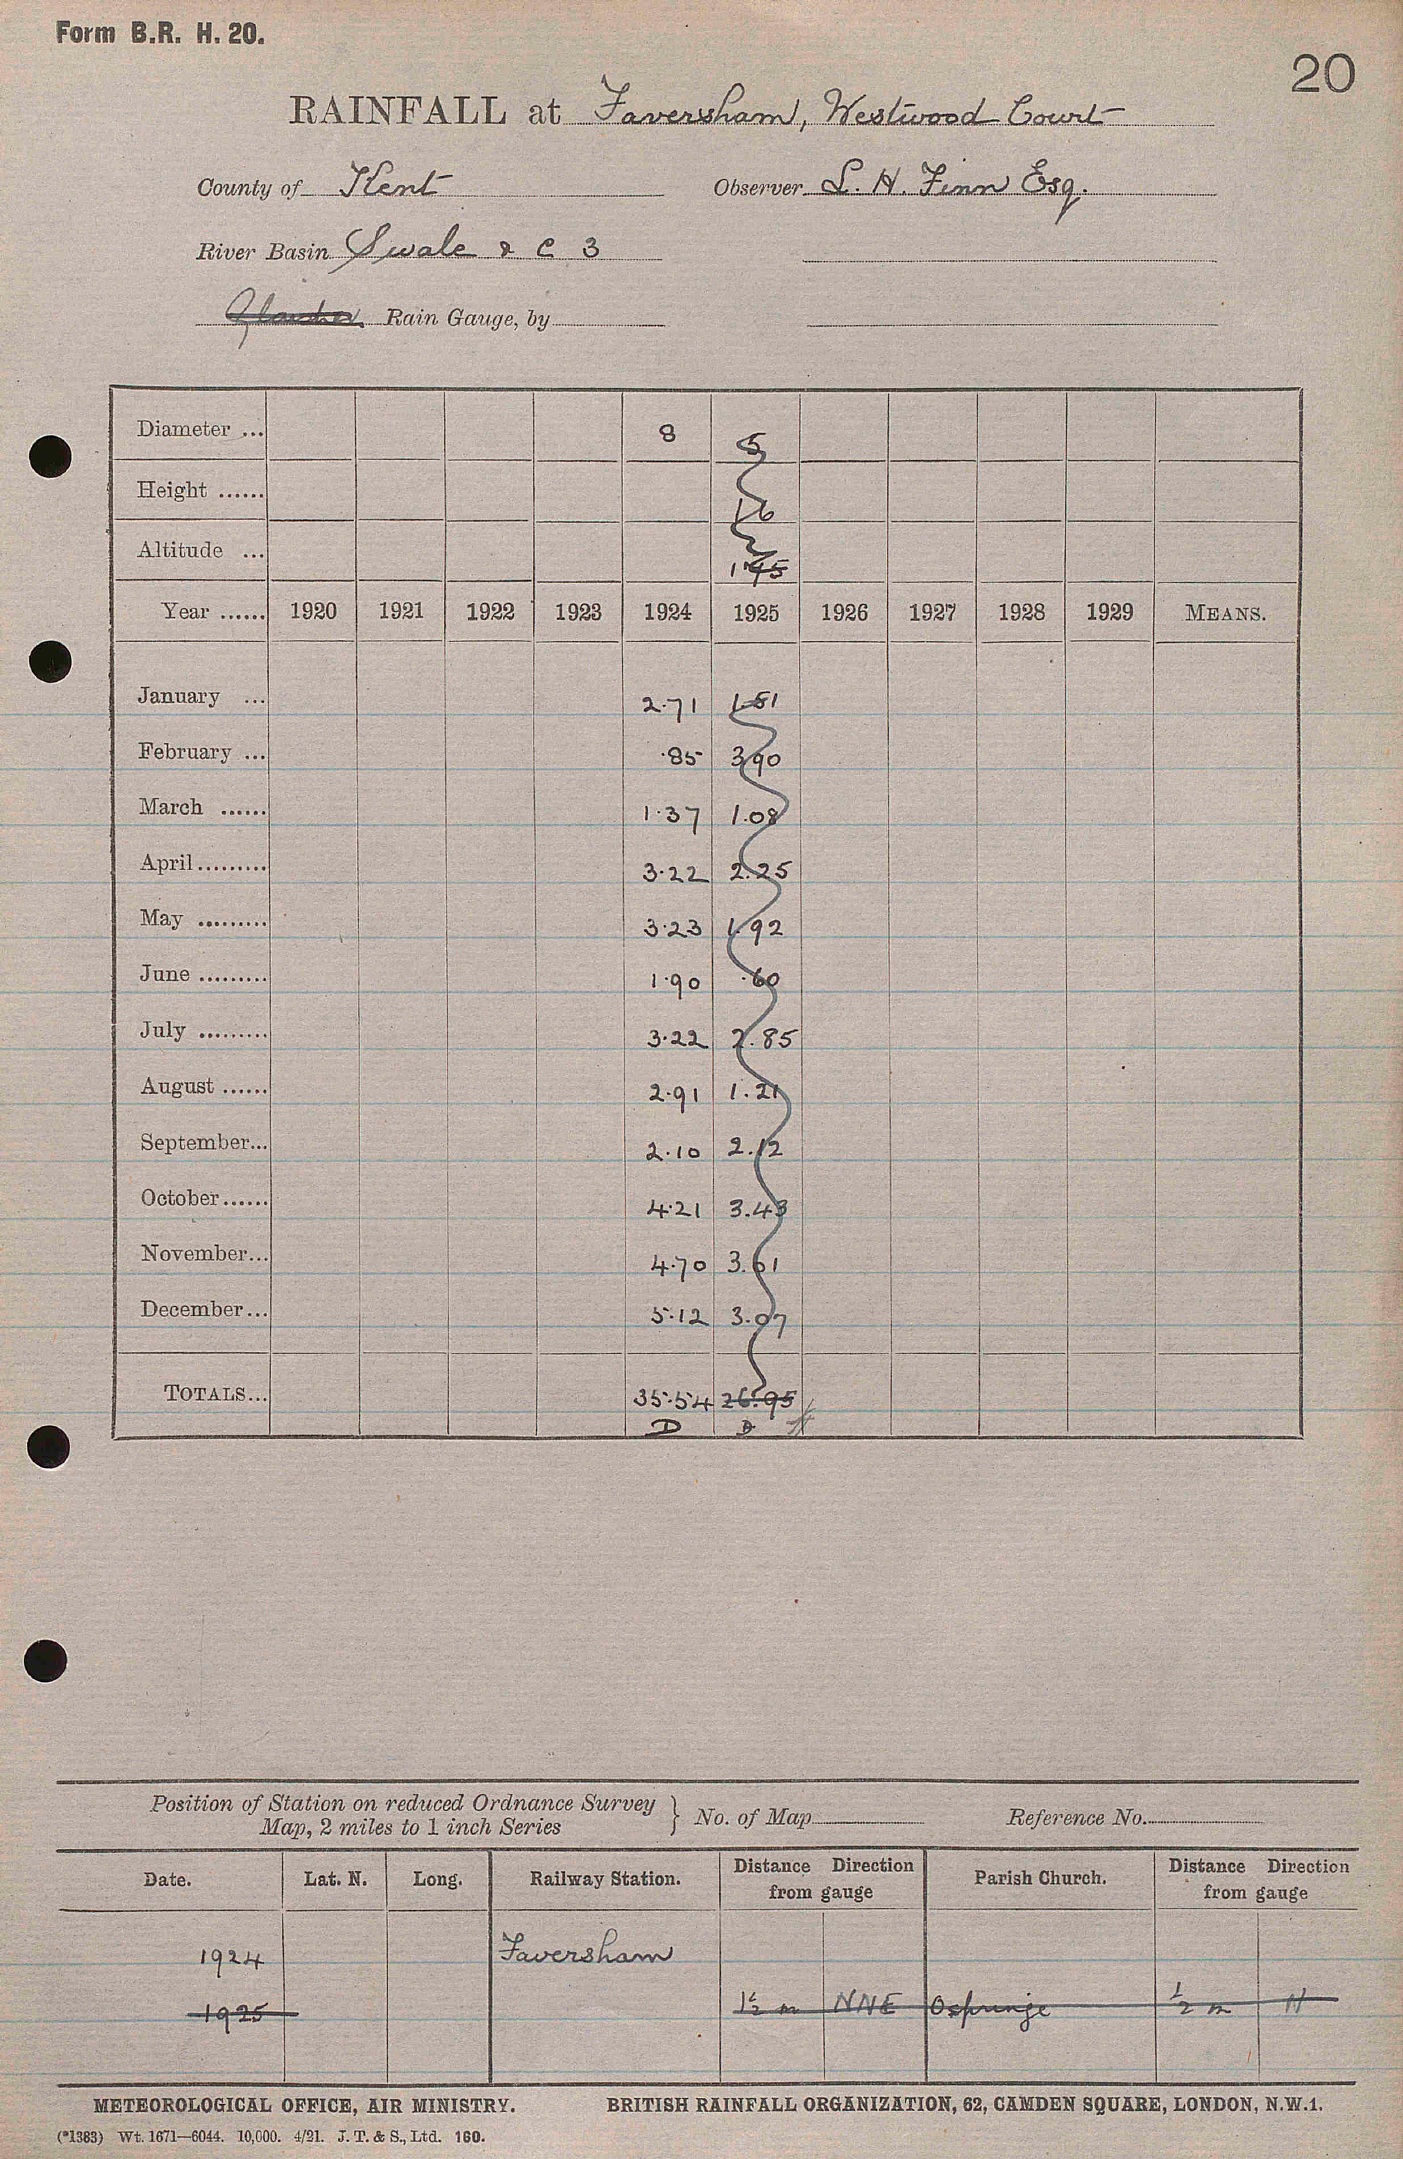 Form B.R. H. 20.
20
RAINFALL at Faversham, Westwood Court
County of Kent Observer L. H. Finn Esq.
River Basin Swale & C 3
Rain Gauge, by
Diameter ... 8 5
Height ...... 1 6
Altitude ... 145
Year ...... 1920 1921 1922 1923 1924 1925 1926 1927 1928 1929 MEANS.
January ... 2.71 1.51
February ... .85 3.90
March ...... 1.37 1.08
April ......... 3.22 2.25
May ......... 3.23 1.92
June ......... 1.90 .60
July ......... 3.22 2.85
August ...... 2.91 1.21
September... 2.10 2.12
October ...... 4.21 3.43
November... 4.70 3.01
December... 5.12 3.07
TOTALS... 35.54 26.95
D D
Position of Station on reduced Ordnance Survey
Map, 2 miles to 1 inch Series } No. of Map Reference No.
Date. Lat. N. Long. Railway Station. Distance Direction from gauge Parish Church. Distance Direction from gauge
1924 Faversham
1925 1½ m NNE Ospringe ½ m N
METEOROLOGICAL OFFICE, AIR MINISTRY. BRITISH RAINFALL ORGANIZATION, 62, CAMDEN SQUARE, LONDON, N.W.1.
(*1383) Wt. 1671—6044. 10,000. 4/21. J. T. & S., Ltd. 160.